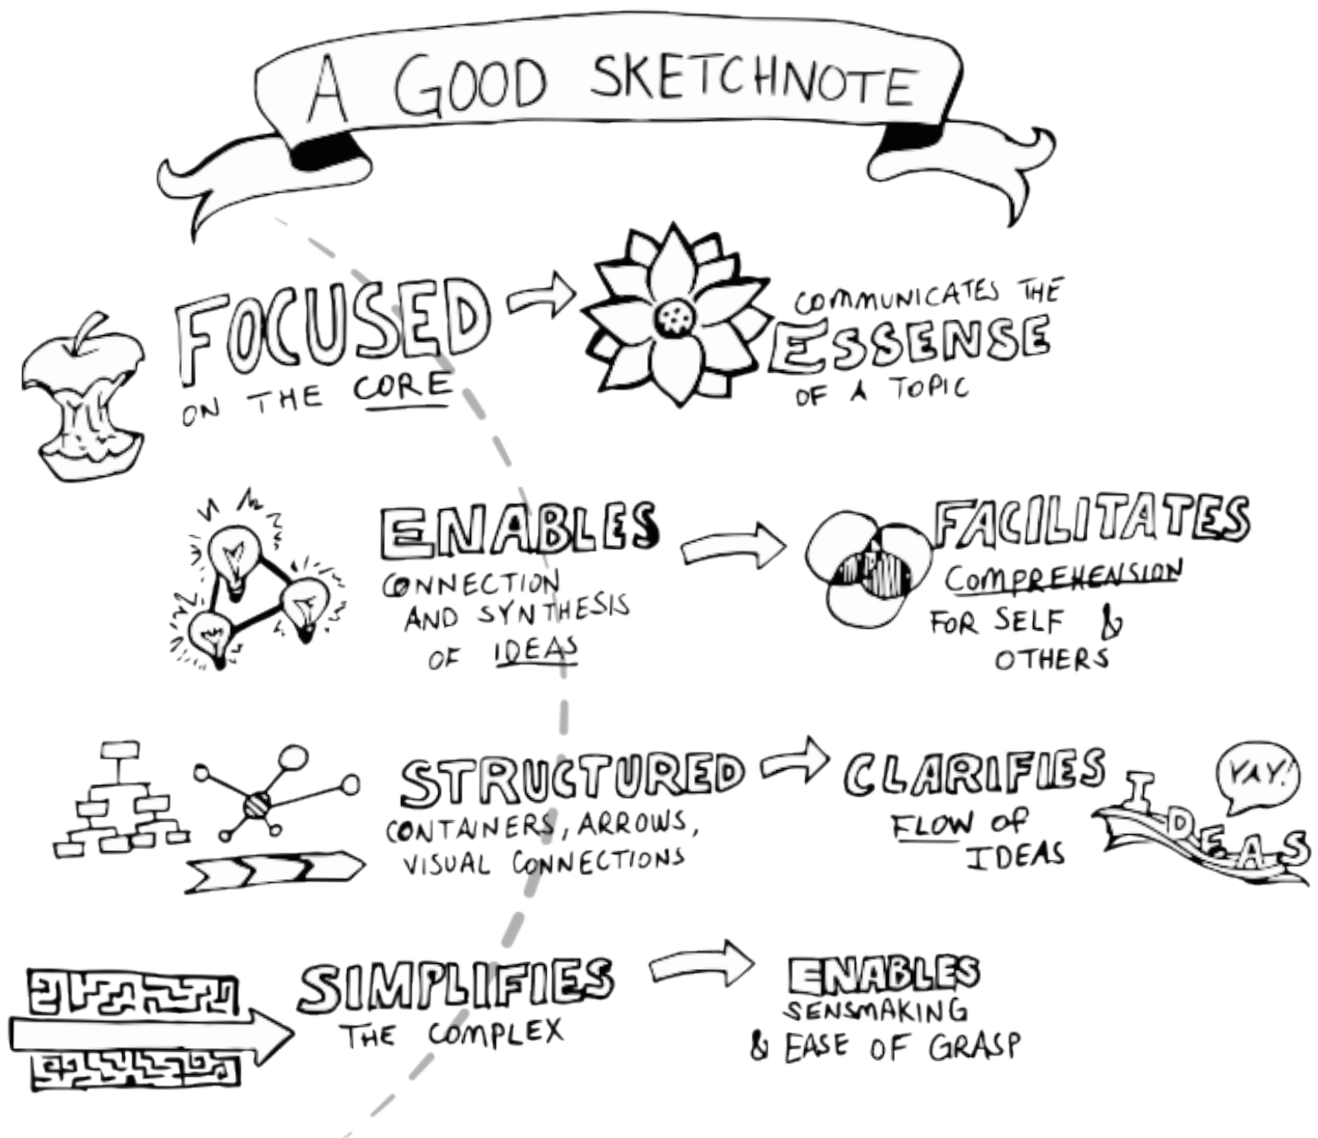 A GOOD SKETCHNOTE
FOCUSED
ON THE CORE
COMMUNICATES THE
ESSENSE
OF A TOPIC
ENABLES
CONNECTION
AND SYNTHESIS
OF IDEAS
FACILITATES
COMPREHENSION
FOR SELF &
OTHERS
STRUCTURED
CONTAINERS, ARROWS,
VISUAL CONNECTIONS
CLARIFIES
FLOW OF
IDEAS
IDEAS
YAY!
SIMPLIFIES
THE COMPLEX
ENABLES
SENSMAKING
& EASE OF GRASP